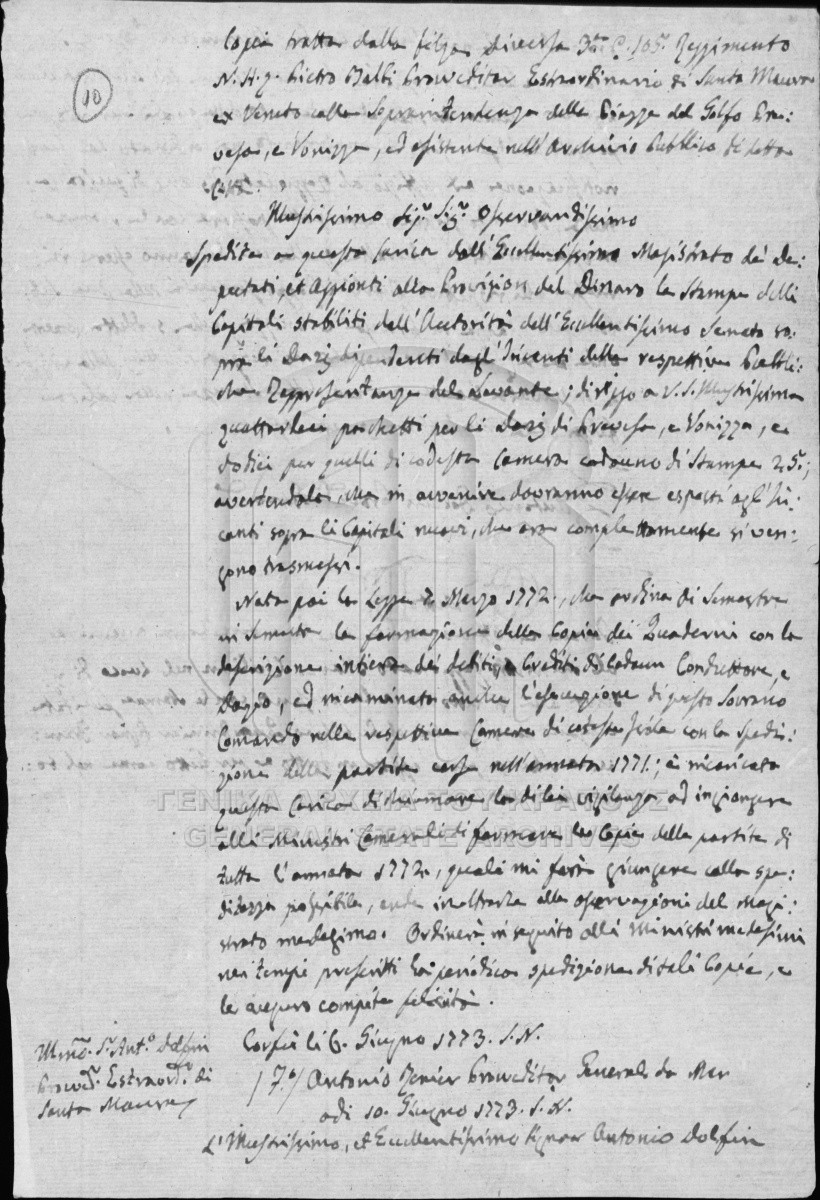 10
Copia tratta dalla filza Diversa 3za C. 105. Reggimento
N. H. q. Pietro Balbi Proveditor Estraordinario di Santa Maura
ex Veneto colla Sopraintendenza delle Piazze del Golfo Pre:
vesa, e Vonizza, ed esistente nell'Archivio Pubblico di detta
Città.
Illustrissimo Sigr. Sigr. Osservandissimo
Spedite a questa Carica dall'Eccellentissimo Magistrato dei De:
putati, et Aggionti alla Provision del Dinaro le Stampe delli
Capitoli stabiliti dall'Autorità dell'Eccellentissimo Senato so:
pra li Dazj dipendenti dagl'Incanti delle respettive Pubbli:
che Rappresentanze del Levante; dirizzo a V. S. Illustrissima
quattordeci pachetti per li Dazj di Prevesa, e Vonizza, e
dodici per quelli di codesta Camera cadauno di Stampe 25.;
avertendola che in avvenire dovranno esser esposti agl'In:
canti sopra li Capitoli nuovi, che ora complettamente si ven:
gono trasmessi.
Nata poi la Legge 7. Marzo 1772., che ordina di Semestre
in Semestre la formazione delle Copie dei Quaderni con la
descrizione intiera dei debiti, e Crediti di Cadaun Conduttore, e
Dazio, ed incaminata anche l'esecuzione di questo Sovrano
Comando nelle respettive Camere di coteste Isole con la spedi:
zione delle partite corse nell'annata 1771.; è incaricata
questa Carica di chiamare la di lei vigilanza ad ingiongere
alli Ministri Camerali di formare le Copie delle partite di
tutta l'annata 1772., quali mi farà giungere colla spe:
ditezza possibile, onde inoltrarle alle osservazioni del Magi:
strato medesimo. Ordinerà in seguito alli Ministri medesimi
nei tempi prescritti la periodica spedizione di tali Copie, e
le auguro compita felicità.
Corfù li 6. Giugno 1773. S. N.
Illmo. Sr. Anto. Dolfin
Provedr. Estraordo. di
Santa Maura
Antonio Renier Proveditor General da Mar
adi 10. Giugno 1773. S. N.
L'Illustrissimo, et Eccellentissimo Signor Antonio Dolfin
ΓΕΝΙΚΑ ΑΡΧΕΙΑ ΤΟΥ ΚΡΑΤΟΥΣ
GENERAL STATE ARCHIVES